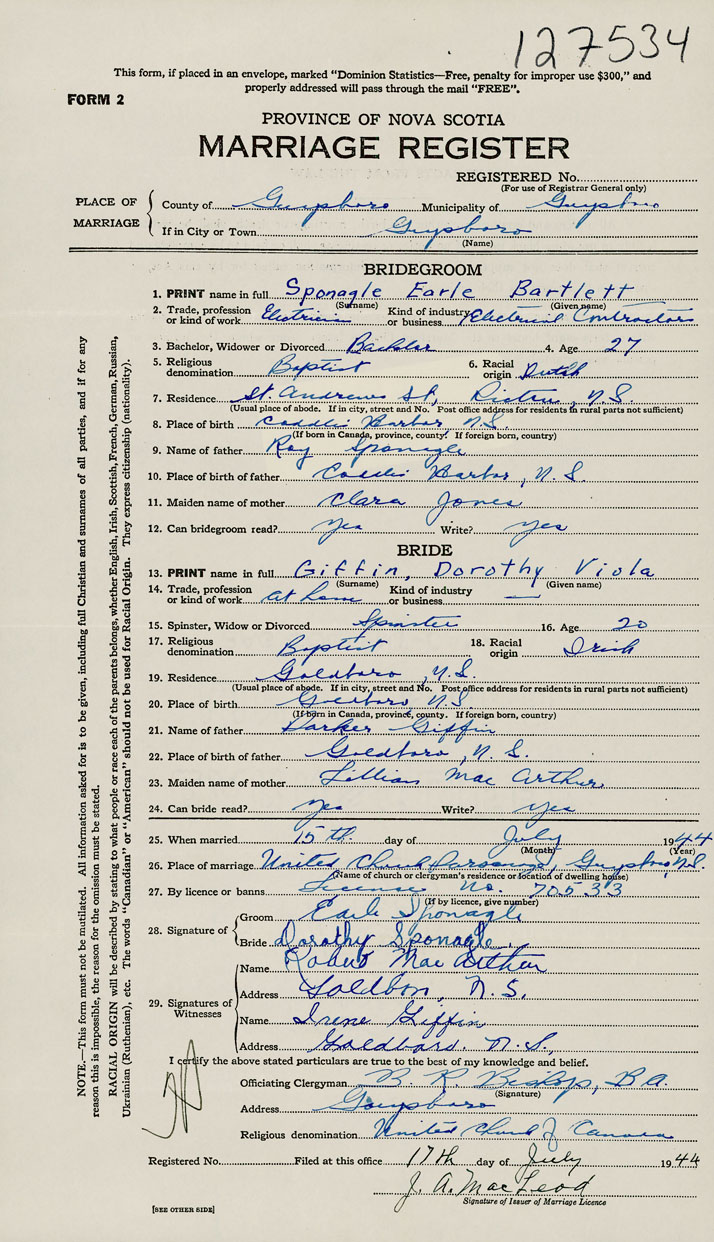 127534
This form, if placed in an envelope, marked "Dominion Statistics—Free, penalty for improper use $300," and
properly addressed will pass through the mail "FREE".
FORM 2
PROVINCE OF NOVA SCOTIA
MARRIAGE REGISTER
REGISTERED No.
(For use of Registrar General only)
PLACE OF MARRIAGE
County of Guysboro Municipality of Guysboro
If in City or Town Guysboro
(Name)
BRIDEGROOM
1. PRINT name in full Sponagle Earle Bartlett
(Surname) (Given name)
2. Trade, profession or kind of work Electrician Kind of industry or business Electrical Contractors
3. Bachelor, Widower or Divorced Bachelor 4. Age 27
5. Religious denomination Baptist 6. Racial origin Dutch
7. Residence St. Andrews St, Pictou, N.S.
(Usual place of abode. If in city, street and No. Post office address for residents in rural parts not sufficient)
8. Place of birth Caddis Harbor N.S.
(If born in Canada, province, county. If foreign born, country)
9. Name of father Roy Sponagle
10. Place of birth of father Caddis Harbor, N.S.
11. Maiden name of mother Clara Jones
12. Can bridegroom read? yes Write? yes
BRIDE
13. PRINT name in full Giffin, Dorothy Viola
(Surname) (Given name)
14. Trade, profession or kind of work at home Kind of industry or business —
15. Spinster, Widow or Divorced Spinster 16. Age 20
17. Religious denomination Baptist 18. Racial origin Irish
19. Residence Goldboro, N.S.
(Usual place of abode. If in city, street and No. Post office address for residents in rural parts not sufficient)
20. Place of birth Goldboro N.S.
(If born in Canada, province, county. If foreign born, country)
21. Name of father Parker Giffin
22. Place of birth of father Goldboro, N.S.
23. Maiden name of mother Lillian MacArthur
24. Can bride read? yes Write? yes
25. When married 15th day of July 1944
(Month) (Year)
26. Place of marriage United Church Parsonage, Guysboro N.S.
(Name of church or clergyman's residence or location of dwelling house)
27. By licence or banns License No. 70533
(If by licence, give number)
28. Signature of
Groom Earle Sponagle
Bride Dorothy Sponagle
29. Signatures of Witnesses
Name Robert MacArthur
Address Goldboro, N.S.
Name Irene Giffin
Address Goldboro. N.S.
I certify the above stated particulars are true to the best of my knowledge and belief.
Officiating Clergyman B. R. Bishop, B.A.
(Signature)
Address Guysboro
Religious denomination United Church of Canada
Registered No. Filed at this office 17th day of July 1944
J. A. MacLeod
Signature of Issuer of Marriage Licence
[SEE OTHER SIDE]
NOTE.—This form must not be mutilated. All information asked for is to be given, including full Christian and surnames of all parties, and if for any
reason this is impossible, the reason for the omission must be stated.
RACIAL ORIGIN will be described by stating to what people or race each of the parents belongs, whether English, Irish, Scottish, French, German, Russian,
Ukrainian (Ruthenian), etc. The words "Canadian" or "American" should not be used for Racial Origin. They express citizenship (nationality).